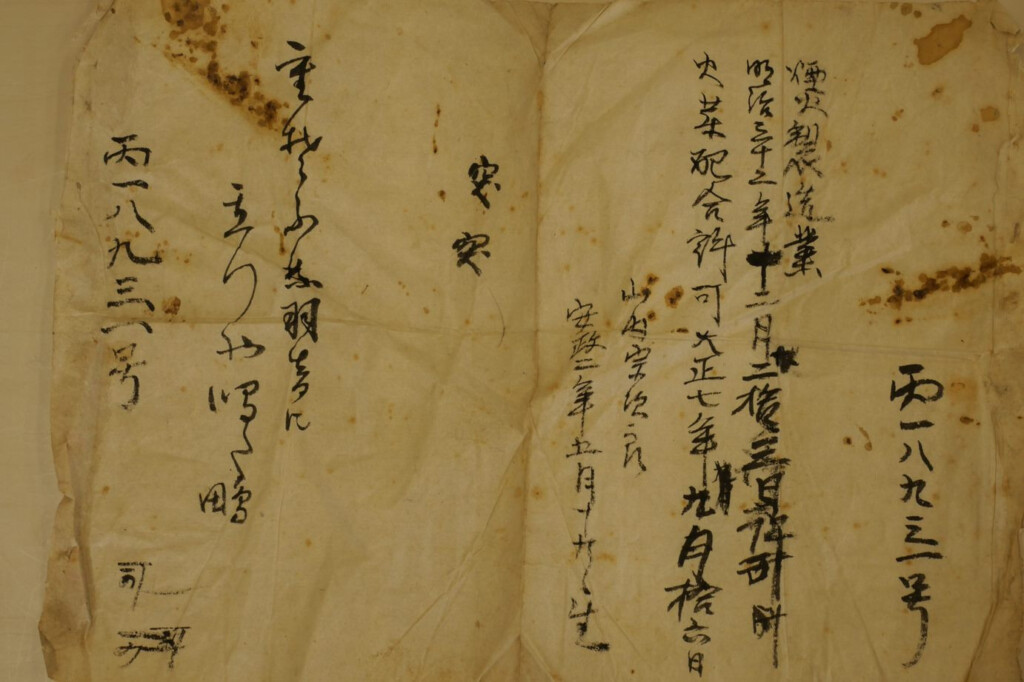 丙一八九三一号
煙火製造業
明治三十二年十二月二拾三日許可
火薬配合許可大正七年九月拾六日
山内宗次郎
安政二年五月十九日生
突
突
羽音に
立つや
丙一八九三一号